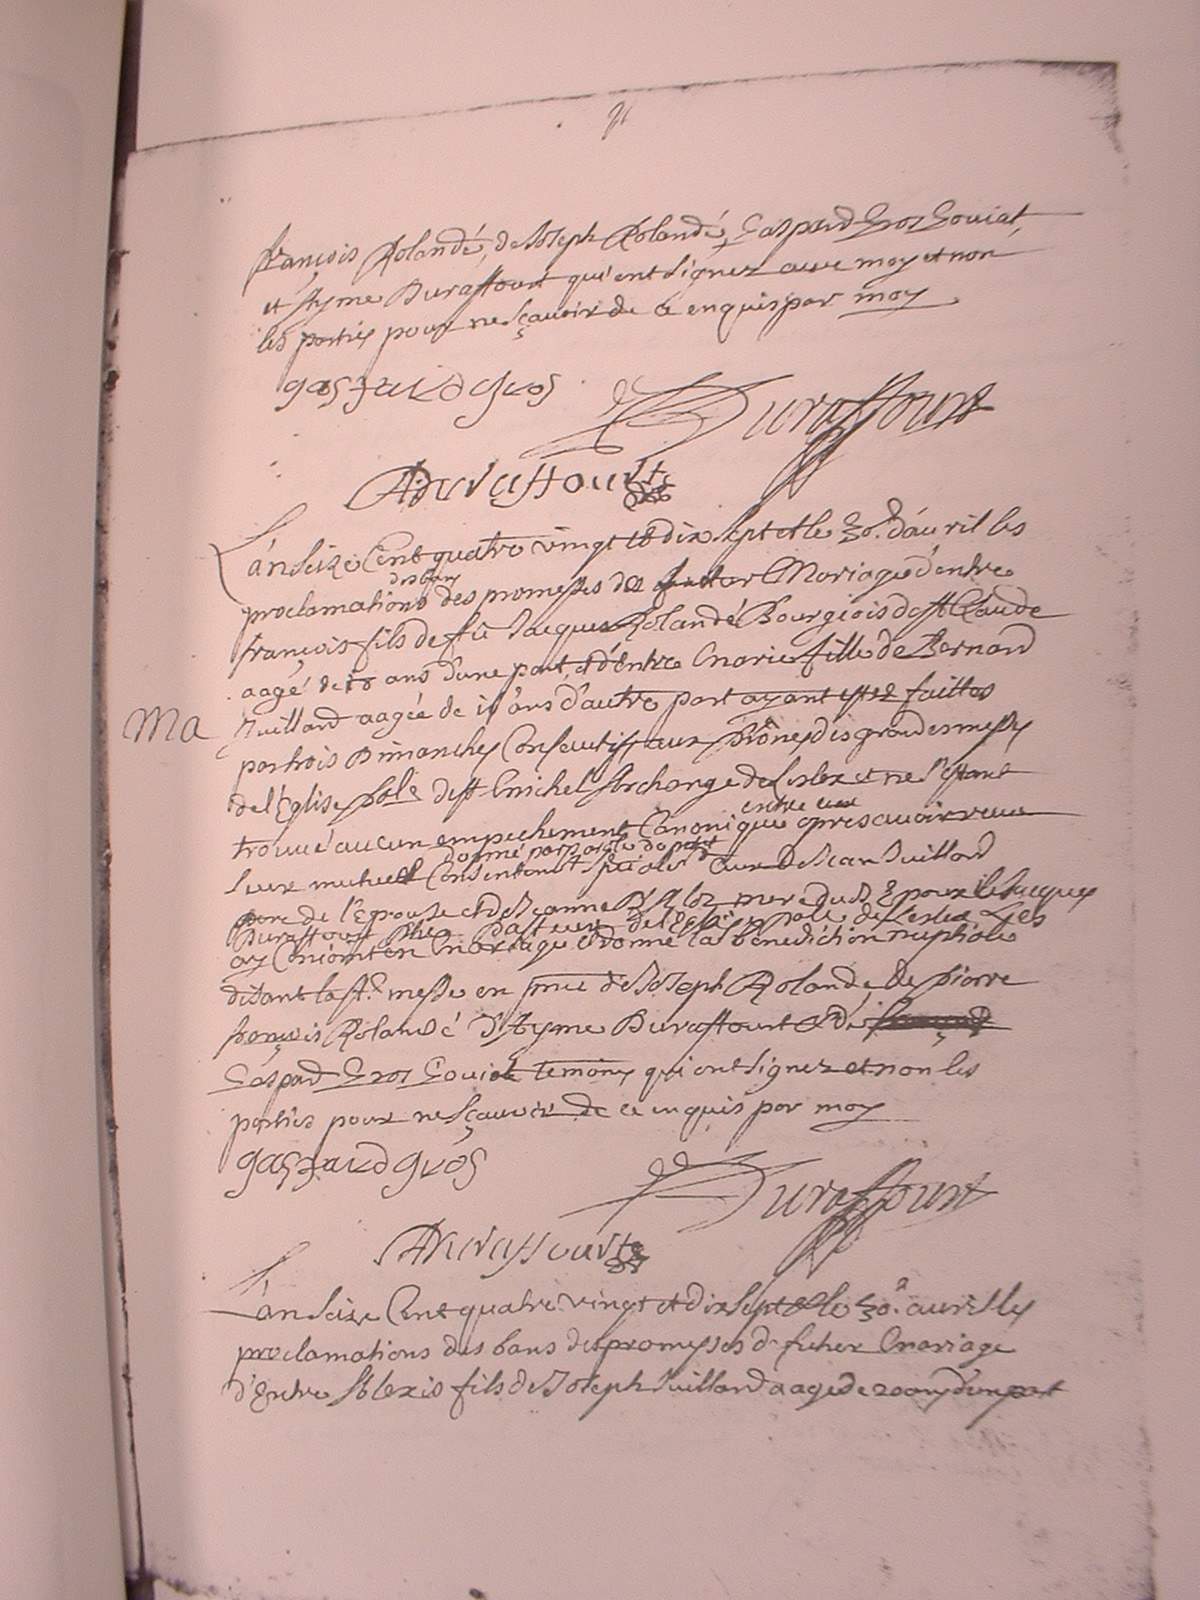 françois Rolandé, de Joseph Rolandé, Gaspard Gros Goviat,
et Ayme Duraffourt qui ont signez avec moy et non
les parties pour ne sçavoir de ce enquis par moy
gaspard gros
Duraffourt
ADuraffourt
L'an seize Cent quatre vingt et dix sept et le 30.e d'auril les
proclamations des bans des promesses de futur Mariage d'entre
françois fils de fû Jacques Rolandé Bourgiois de St Claude
aagé de ans d'une part, et d'Entre Marie fille de Bernard
Ma
Juillard aagée de ans d'autre part ayant estez faittes
par trois Dimanches Consecutifs aux Prônes des grandes messes
de l'Eglise de St Michel Archange de et ne s'estant
trouué aucun empechement Canonique entre eux apres avoir receu
leur mutuel Consentement donné par parole de de Jean Juillard
pere de l'Epouse et de Jeanne mere du d Epoux je Jacques
Duraffourt Pasteur de de les
ay Conioint en Mariage et donné la benediction nuptiale
disant la Ste messe en pnce de Joseph Rolandé, de Pierre
françois Rolandé d'Ayme Duraffourt et de
Gaspard Gros Goviat temoins qui ont signez et non les
parties pour ne sçavoir de ce enquis par moy
gaspard gros
Duraffourt
ADuraffourt
L'an seize Cent quatre vingt et dix sept et le 30.e auril les
proclamations des bans des promesses de futur Mariage
d'Entre Alexis fils de Joseph Juillard aagé de 20 ans d'une part